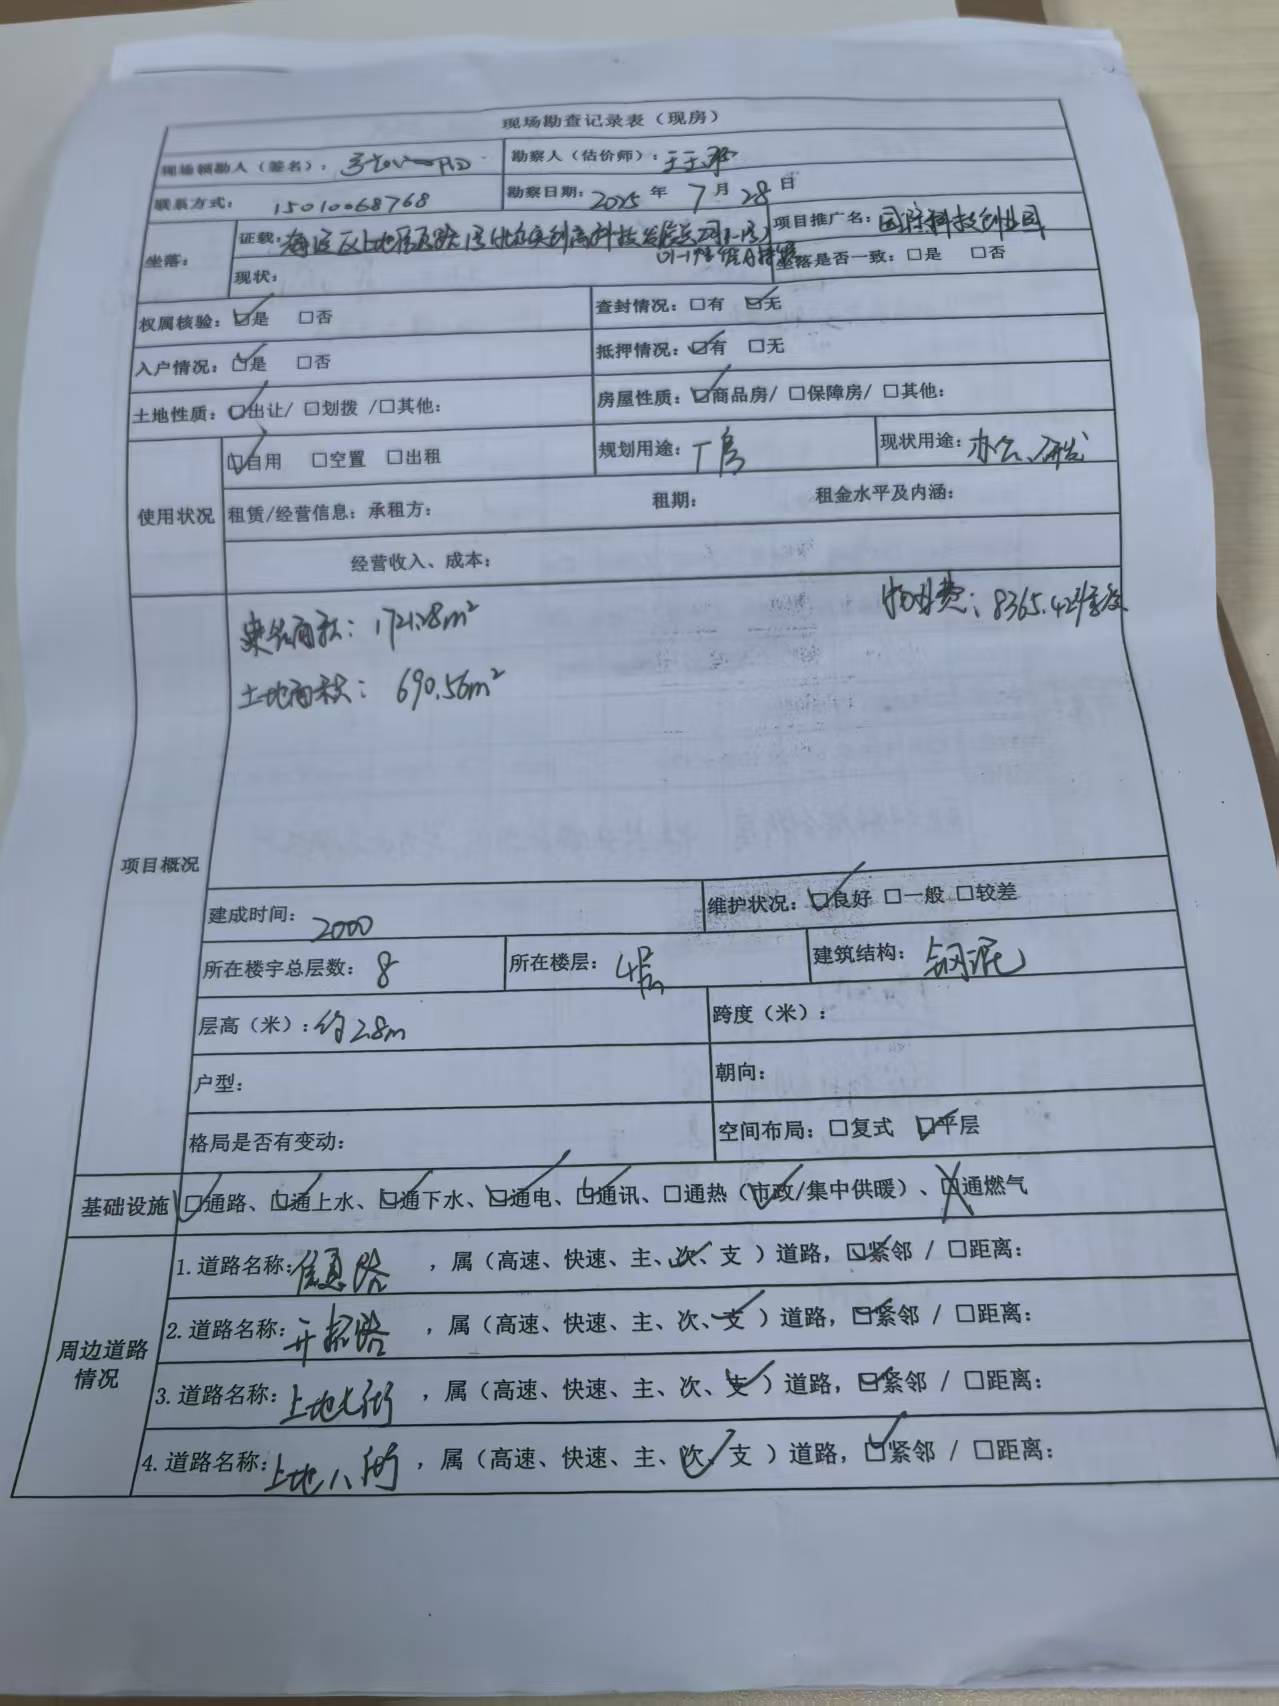 现场勘查记录表（现房）
现场领勘人（签名）： 勘察人（估价师）：王玉
联系方式：15010068768 勘察日期：2025年7月28日
坐落： 证载：海淀区上地信息路1号(北京实创高科技发展总公司1-1号) 项目推广名：国际科技创业园
01-1 A
现状： 坐落是否一致：□是 □否
权属核验：☑是 □否 查封情况：□有 ☑无
入户情况：☑是 □否 抵押情况：☑有 □无
土地性质：☑出让/ □划拨 /□其他： 房屋性质：☑商品房/ □保障房/ □其他：
使用状况 ☑自用 □空置 □出租 规划用途：厂房 现状用途：办公、研发
租赁/经营信息：承租方： 租期： 租金水平及内涵：
经营收入、成本：
项目概况 建筑面积：1721.28m² 物业费：8365.42
土地面积：690.56m²
建成时间：2000 维护状况：☑良好 □一般 □较差
所在楼宇总层数：8 所在楼层：4层 建筑结构：钢混
层高（米）：约2.8m 跨度（米）：
户型： 朝向：
格局是否有变动： 空间布局：□复式 ☑平层
基础设施 ☑通路、☑通上水、☑通下水、☑通电、☑通讯、□通热（市政/集中供暖）、☒通燃气
周边道路情况 1.道路名称：信息路，属（高速、快速、主、次、支 ）道路，☑紧邻 / □距离：
2.道路名称：开拓路，属（高速、快速、主、次、支 ）道路，☑紧邻 / □距离：
3.道路名称：上地七街，属（高速、快速、主、次、支 ）道路，☑紧邻 / □距离：
4.道路名称：上地八街，属（高速、快速、主、次、支 ）道路，☑紧邻 / □距离：